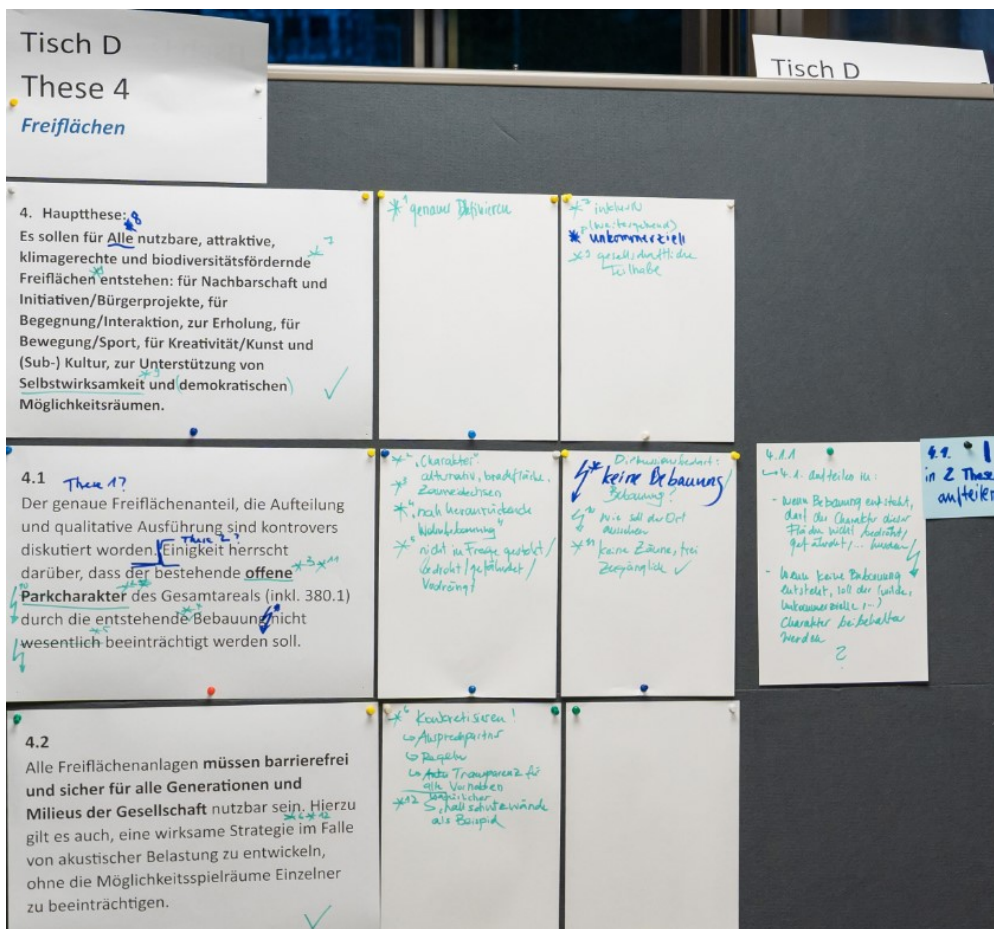 Tisch D
These 4
Freiflächen
Tisch D
4. Hauptthese: *8
Es sollen für Alle nutzbare, attraktive,
klimagerechte und biodiversitätsfördernde
Freiflächen entstehen: für Nachbarschaft und
Initiativen/Bürgerprojekte, für
Begegnung/Interaktion, zur Erholung, für
Bewegung/Sport, für Kreativität/Kunst und
(Sub-) Kultur, zur Unterstützung von
Selbstwirksamkeit und (demokratischen)
Möglichkeitsräumen.
*1 genauer Definieren
*7 inklusiv
(weitergehend)
* unkommerziell
*9 gesellschaftliche
Teilhabe
4.1
These 1?
Der genaue Freiflächenanteil, die Aufteilung
und qualitative Ausführung sind kontrovers
diskutiert worden. Einigkeit herrscht
These 2?
darüber, dass der bestehende offene *3 *11
Parkcharakter des Gesamtareals (inkl. 380.1)
durch die entstehende Bebauung nicht
wesentlich beeinträchtigt werden soll.
*2 "Charakter":
alternativ, Brachfläche,
*3 Zauneidechsen
*4 "nach heranrückende
Wohnbebauung"
*5 nicht in Frage gestellt/
bedroht/gefährdet/
Diskussionsbedarf:
* keine Bebauung/
Bebauung?
*10 wie soll der Ort
aussehen
*11 keine Zäune, frei
Zugänglich ✓
4.1.1
↳ 4.1. aufteilen in:
- Wenn Bebauung entsteht,
darf der Charakter dieser
Flächen nicht bedroht/
gefährdet/... werden
- Wenn keine Bebauung
entsteht, soll der (wilde,
unkommerzielle,...)
Charakter beibehalten
werden
?
4.1.
in 2 These
aufteilen
4.2
Alle Freiflächenanlagen müssen barrierefrei
und sicher für alle Generationen und
Milieus der Gesellschaft nutzbar sein. Hierzu
*6 *12
gilt es auch, eine wirksame Strategie im Falle
von akustischer Belastung zu entwickeln,
ohne die Möglichkeitsspielräume Einzelner
zu beeinträchtigen.
*6 Konkretisieren!
↳ Ansprechpartner
↳ Regeln
↳ Transparenz für
alle Vorhaben
*12 Schallschutzwände
als Beispiel